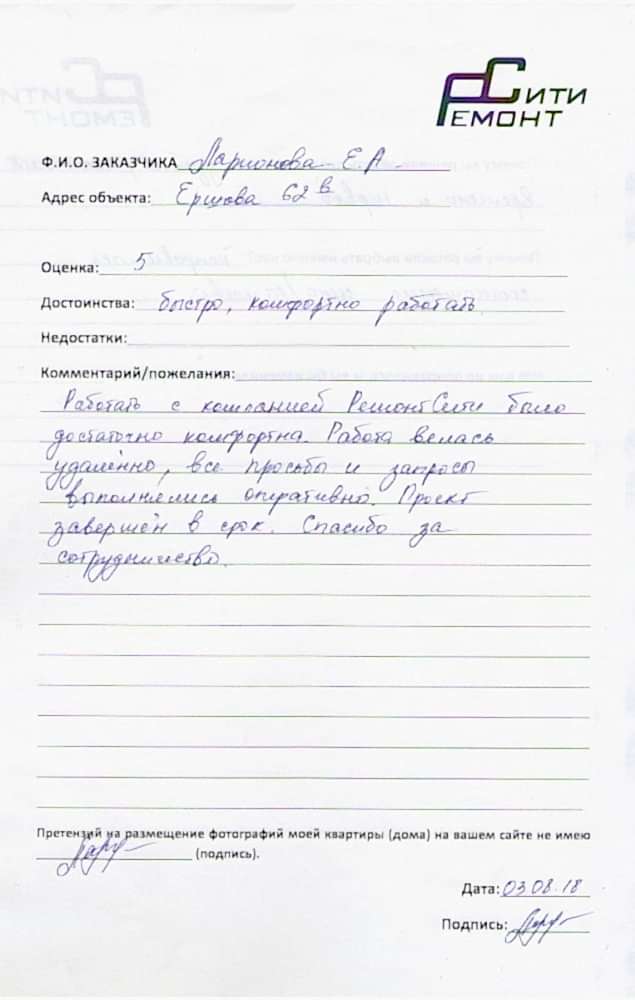 Сити
Ремонт
Ф.И.О. ЗАКАЗЧИКА Ларионова Е.А.
Адрес объекта: Ершова 62 в
Оценка: 5
Достоинства: быстро, комфортно работать
Недостатки:
Комментарий/пожелания:
Работать с компанией РемонтСити было
достаточно комфортна. Работа велась
удалённо, все просьбы и запросы
выполнялись оперативно. Проект
завершён в срок. Спасибо за
сотрудничество.
Претензий на размещение фотографий моей квартиры (дома) на вашем сайте не имею
(подпись).
Дата: 03.08.18
Подпись: